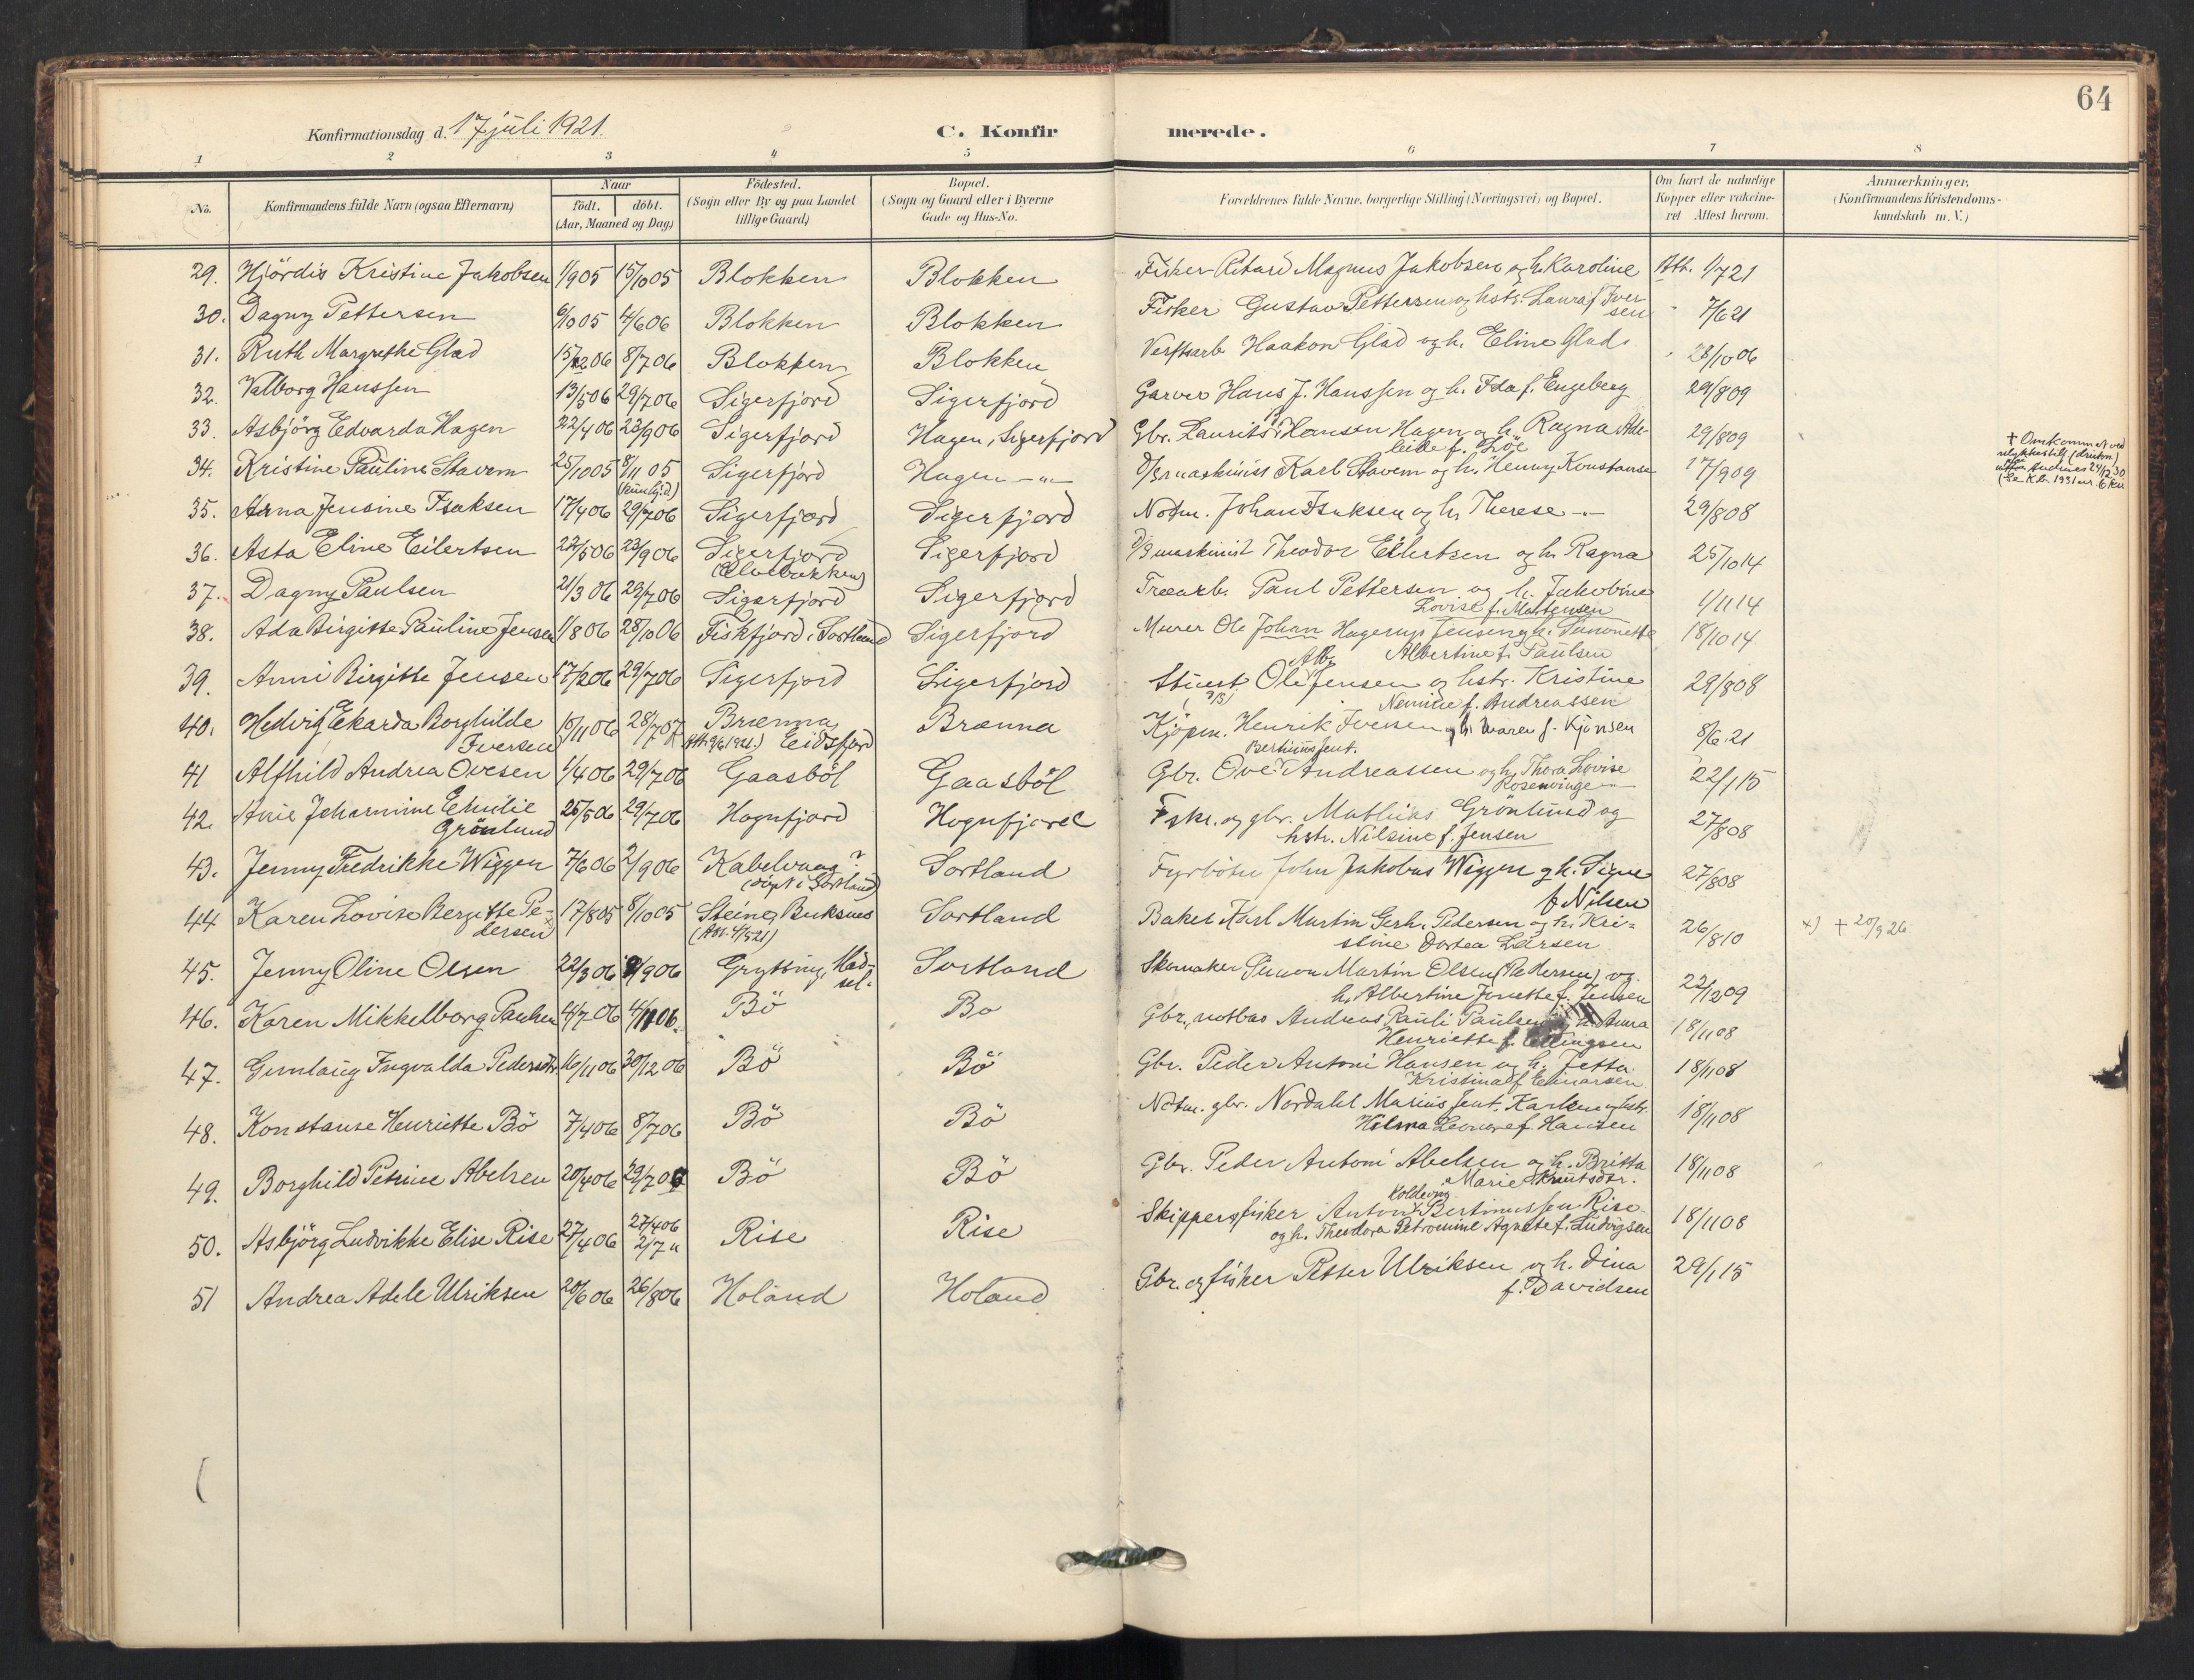 64
Konfirmationsdag d. 17 juli 1921.
C. Konfirmerede.
1 2 3 4 5 6 7 8
No.
Konfirmandens fulde Navn (ogsaa Efternavn)
Naar
födt. döbt.
(Aar, Maaned og Dag)
Födested.
(Sogn eller By og paa Landet
tillige Gaard)
Bopæl.
(Sogn og Gaard eller i Byerne
Gade og Hus-No.
Forældrenes fulde Navne, borgerlige Stilling (Næringsvei) og Bopæl.
Om havt de naturlige
Kopper eller vakcine-
ret Attest herom.
Anmærkninger.
(Konfirmandens Kristendoms-
kundskab m. V.)
29. Hjördis Kristine Jakobsen 1/9 05 15/10 05 Blokken Blokken Fisker Rikard Magnus Jakobsen og h. Karoline Att. 1/7 21
30. Dagny Pettersen 6/10 05 4/6 06 Blokken Blokken Fisker Gustav Pettersen og hstr. Laura f. Iver-
sen 7/6 21
31. Ruth Margrethe Glad 15/2 06 8/7 06 Blokken Blokken Verftsarb. Haakon Glad og h. Eline Glad 28/10 06
32. Valborg Hanssen 13/5 06 29/7 06 Sigerfjord Sigerfjord Garver Hans J. Hanssen og h. Ida f. Engeberg 29/8 09
33. Asbjörg Edvarda Hagen 22/4 06 23/9 06 Sigerfjord Hagen, Sigerfjord Gbr. Laurits Hansen Hagen og h. Ragna Ade-
leide f. 29/8 09
34. Kristine Pauline Stavem 25/10 05 8/11 05 Sigerfjord Hagen -"- D/S maskinist Karl Stavem og h. Henny Konstanse 17/9 09
† Omkommet ved
ulykkestilf. (druknn.)
Andenes 24/12 30
35. Anna Jensine Isaksen 17/4 06 29/7 06 Sigerfjord Sigerfjord Notm. Johan Isaksen og h. Therese -"- 29/8 08
36. Asta Eline Eilertsen 22/5 06 23/9 06 Sigerfjord Sigerfjord D/S maskinist Theodor Eilertsen og h. Ragna 25/10 14
37. Dagny Paulsen 21/3 06 29/7 06 Sigerfjord Sigerfjord Træarb. Paul Pettersen og h. Jakobine
Lovise f. Mortensen 1/11 14
38. Ada Birgitte Pauline Jensen 1/8 06 28/10 06 Fiskfjord i Sortland Sigerfjord Murer Ole Johan Hagerup Jensen og h. Simonette
Albertine f. Paulsen 18/10 14
39. Anni Birgitte Jensen 17/2 06 29/7 06 Sigerfjord Sigerfjord Stuert Ole Alb. Jensen og hstr. Kristine
f. Andreassen 29/8 08
40. Hedvig Ekarda Borghilde
Iversen 10/11 06 28/7 07 Brænna, Eidsfjord Brænna Kjöpm. Henrik Iversen og h. Maren f. Kjönsen 8/6 21
41 Alfhild Andrea Ovesen 1/4 06 29/7 06 Gaasböl Gaasböl Gbr. Ove Bertinus Jent. Andreassen og h. Thora Lovise
Rosenvinge 22/1 15
42. Anie Johannine Emilie
Grönlund 25/5 06 29/7 06 Hognfjord Hognfjord Fskr. og gbr. Mathias Grönlund og
hstr. Nilsine f. Jensen 27/8 08
43. Jenny Fredrikke Wiggen 7/6 06 2/9 06 Kabelvaag ?
(döpt i Sortland) Sortland Fyrböter John Jakobus Wiggen og h. Signe
f. Nilsen 27/8 08
44 Karen Lovise Bergitte Pe-
dersen 17/8 05 8/10 05 Steine, Buksnes
(Att. 4/5 21) Sortland Baker Karl Martin Gerh. Pedersen og h. Kri-
stine Dortea Larsen 26/8 10 x) † 20/9 26
45. Jenny Oline Olsen 22/3 06 9/9 06 Grytting, Had-
sel. Sortland Skomaker Simon Martin Olsen (Pedersen) og
h. Albertine Jonette f. Jensen 22/12 09
46. Karen Mikkelborg Paulsen 4/7 06 4/11 06. Bö Bö Gbr., notbas Andreas Pauli Paulsen og h. Anna
Henriette f. Ellingsen 18/11 08
47. Gunlaug Ingvalda Pedersdtr. 10/11 06 30/12 06 Bö Bö Gbr. Peder Antoni Hansen og h. Jetta
Kristina f. Einarsen 18/11 08
48. Konstanse Henriette Bö 7/4 06 8/7 06 Bö Bö Notm. gbr. Nordahl Marius Jent. Karlsen og hstr.
Hilma Leonore f. Hansen 18/11 08
49. Borghild Petrine Abelsen 20/4 06 29/7 06 Bö Bö Gbr. Peder Antoni Abelsen og h. Britta
Marie Knutsdtr. 18/11 08
50. Asbjörg Ludvikke Elise Rise 27/4 06 27/4 06
2/7 " Rise Rise Skipper, fisker Anton Koldevin Bertinussen Rise
og h. Theodora Petromine Agnete f. Ludvigsen 18/11 08
51 Andrea Adele Ulriksen 20/6 06 26/8 06 Holand Holand Gbr. og fisker Petter Ulriksen og h. Dina
f. Davidsen 29/1 15